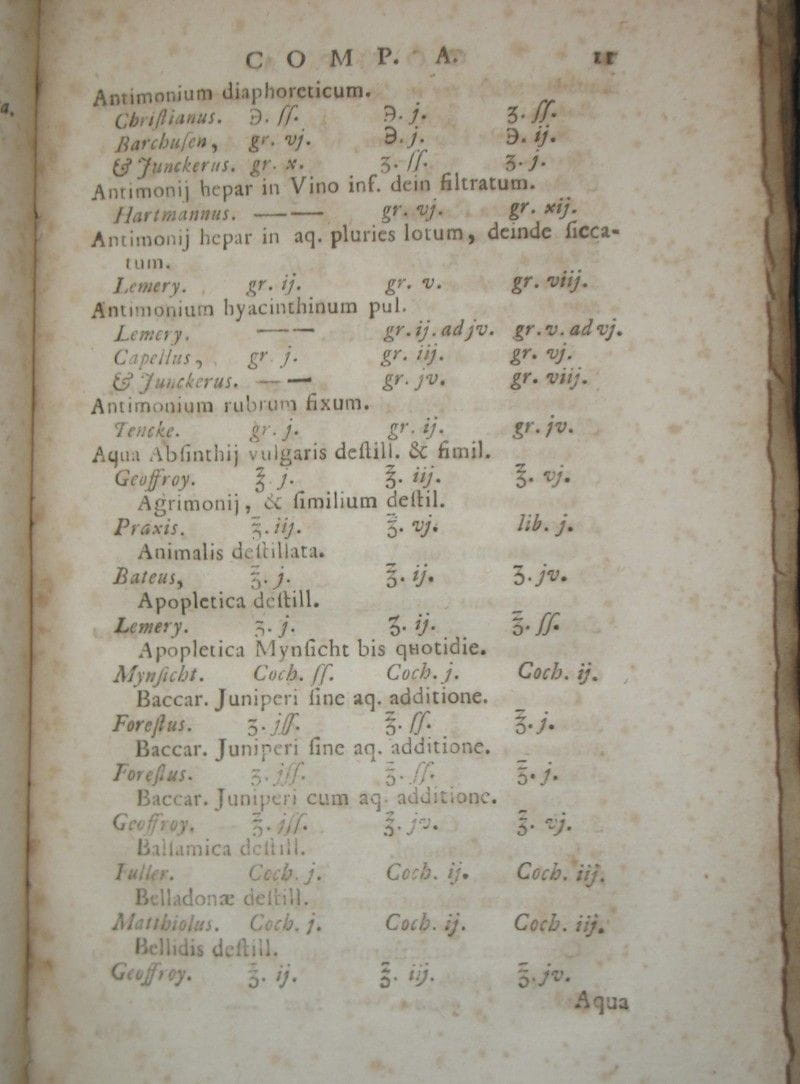 COMP. A. 11
Antimonium diaphoreticum.
Chriſtianus. ℈. ſſ. ℈. j. ʒ. ſſ.
Barchuſen, gr. vj. ℈. j. ℈. ij.
& Junckerus. gr. x. ʒ. ſſ. ʒ. j.
Antimonij hepar in Vino inf. dein filtratum.
Hartmannus. —— gr. vj. gr. xij.
Antimonij hepar in aq. pluries lotum, deinde ſicca-
tum.
Lemery. gr. ij. gr. v. gr. viij.
Antimonium hyacinthinum pul.
Lemery. —— gr. ij. ad jv. gr. v. ad vj.
Capellus, gr j. gr. iij. gr. vj.
& Junckerus. —— gr. jv. gr. viij.
Antimonium rubrum fixum.
Tencke. gr. j. gr. ij. gr. jv.
Aqua Abſinthij vulgaris deſtill. & ſimil.
Geoffroy. ℥ j. ℥. iij. ℥. vj.
Agrimonij, & ſimilium deſtil.
Praxis. ℥. iij. ℥. vj. lib. j.
Animalis deſtillata.
Bateus, ʒ. j. ℥. ij. ʒ. jv.
Apopletica deſtill.
Lemery. ʒ. j. ʒ. ij. ℥. ſſ.
Apopletica Mynſicht bis quotidie.
Mynſicht. Coch. ſſ. Coch. j. Coch. ij.
Baccar. Juniperi ſine aq. additione.
Foreſtus. ʒ. jſſ. ℥. ſſ. ℥. j.
Baccar. Juniperi ſine aq. additione.
Foreſtus. ʒ. jſſ. ℥. ſſ. ℥. j.
Baccar. Juniperi cum aq. additione.
Geoffroy. ℥. jſſ. ℥. jv. ℥. vj.
Balſamica deſtill.
Fuller. Coch. j. Coch. ij. Coch. iij.
Belladonæ deſtill.
Matthiolus. Coch. j. Coch. ij. Coch. iij.
Bellidis deſtill.
Geoffroy. ℥. ij. ℥. iij. ℥. jv.
Aqua